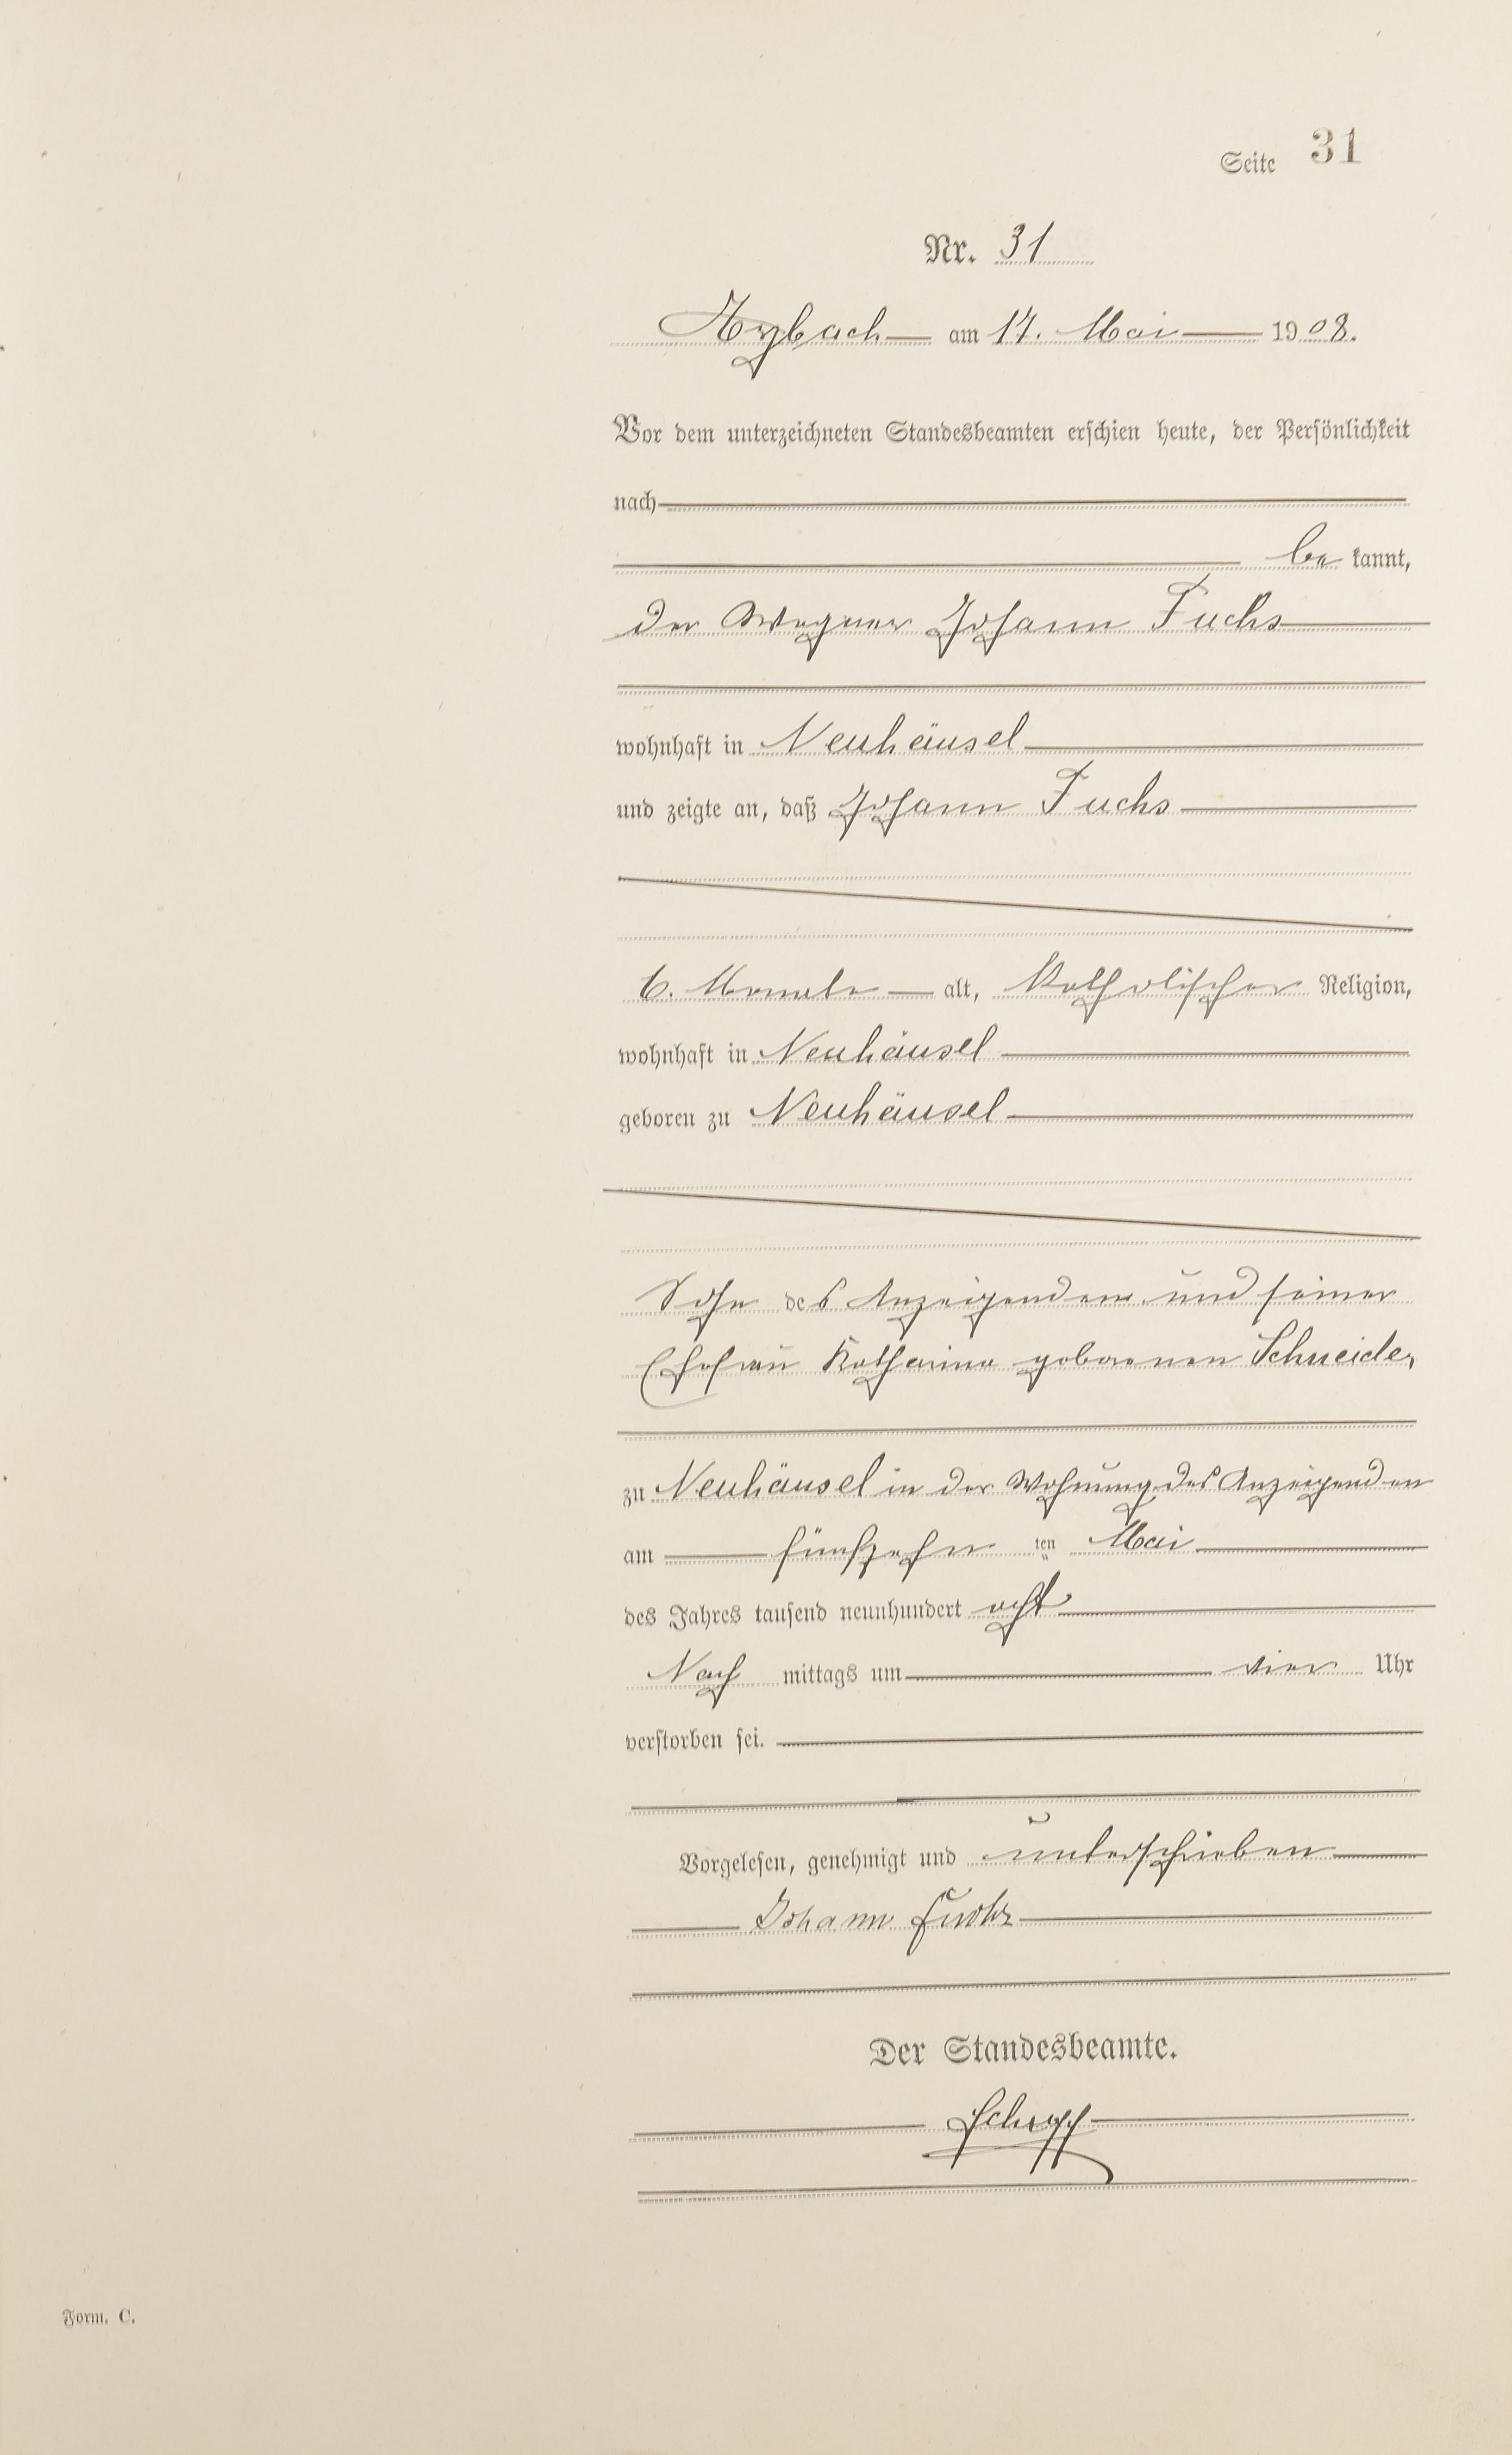 Seite 31
Nr. 31
Arzbach am 17. Mai 1908.
Vor dem unterzeichneten Standesbeamten erschien heute, der Persönlichkeit
nach
be kannt,
der Wagner Johann Fuchs
wohnhaft in Neuhäusel
und zeigte an, daß Johann Fuchs
6. Monate alt, katholischer Religion,
wohnhaft in Neuhäusel
geboren zu Neuhäusel
Sohn des Anzeigenden und seiner
Ehefrau Katharina geborenen Schneider
zu Neuhäusel in der Wohnung des Anzeigenden
am fünfzehn ten Mai
des Jahres tausend neunhundert acht
Nach mittags um vier Uhr
verstorben sei.
Vorgelesen, genehmigt und unterschrieben
Johann Fuchs
Der Standesbeamte.
Form. C.